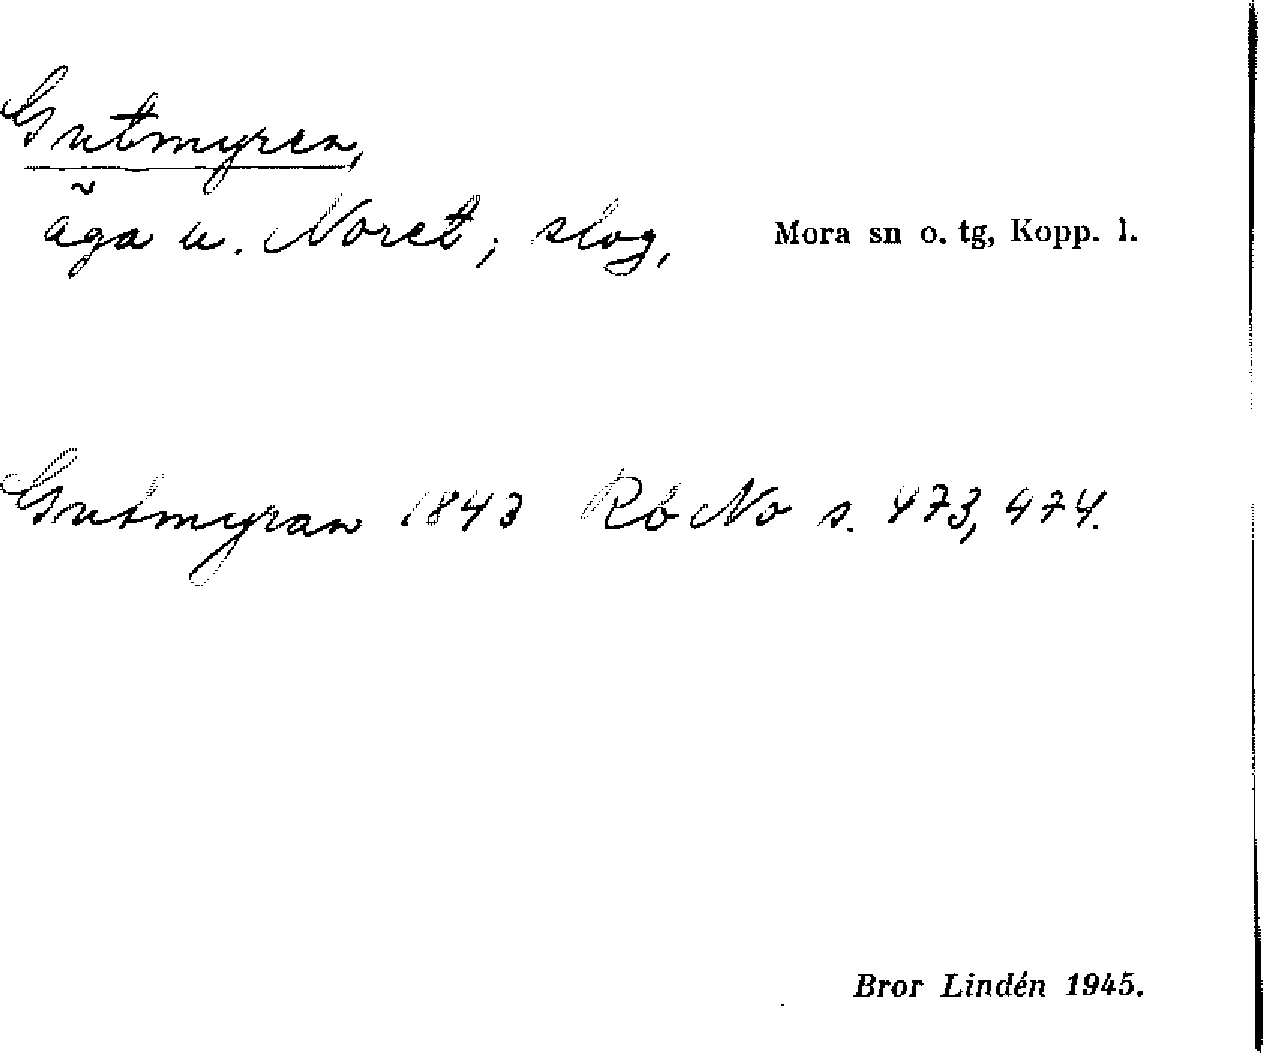 Gutmyren,
äga u. Noret; slog, Mora sn o. tg, Kopp. l.
Gutmyran 1843 Rb No s. 473, 474.
Bror Lindén 1945.